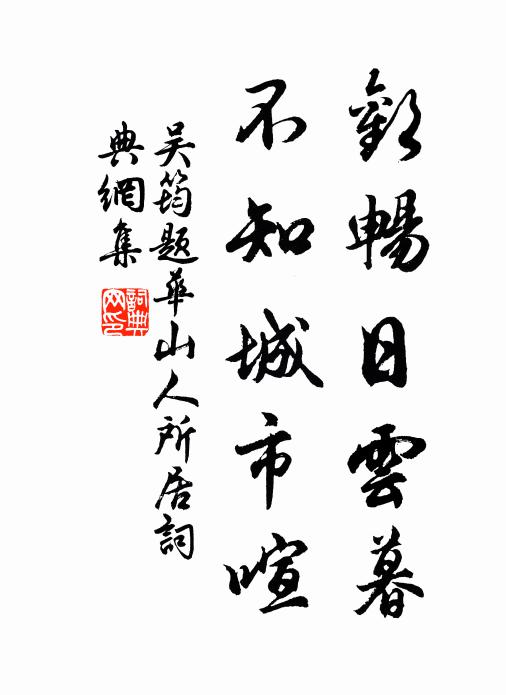 歡暢日雲暮
不知城市喧
吳筠題華山人所居詞
典網集
詞典
網印